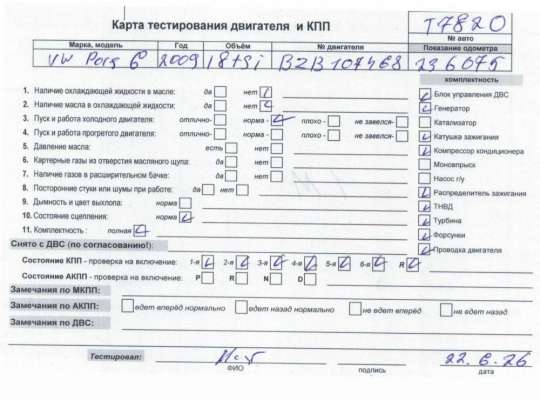 Карта тестирования двигателя и КПП
T7820
№ авто
Марка, модель Год Объём № двигателя Показание одометра
VW 2009 1 8 tsi BZB 107468 236075
комплектность
1. Наличие охлаждающей жидкости в масле: да нет
2. Наличие масла в охлаждающей жидкости: да нет
3. Пуск и работа холодного двигателя: отлично- норма - плохо - не завелся-
4. Пуск и работа прогретого двигателя: отлично- норма - плохо - не завелся-
5. Давление масла: есть нет
6. Картерные газы из отверстия масляного щупа: да нет
7. Наличие газов в расширительном бачке: да нет
8. Посторонние стуки или шумы при работе: да нет
9. Дымность и цвет выхлопа: норма
10. Состояние сцепления: норма
11. Комплектность : полная
Блок управления ДВС
Генератор
Катализатор
Катушка зажигания
Компрессор кондиционера
Моновпрыск
Насос г/у
Распределитель зажигания
ТНВД
Турбина
Форсунки
Проводка двигателя
Снято с ДВС (по согласованию!):
Состояние КПП - проверка на включение: 1-я 2-я 3-я 4-я 5-я 6-я R
Состояние АКПП - проверка на включение: P R N D
Замечания по МКПП:
Замечания по АКПП: едет вперёд нормально едет назад нормально не едет вперёд не едет назад
Замечания по ДВС:
Тестировал: 22.6.26
ФИО подпись дата